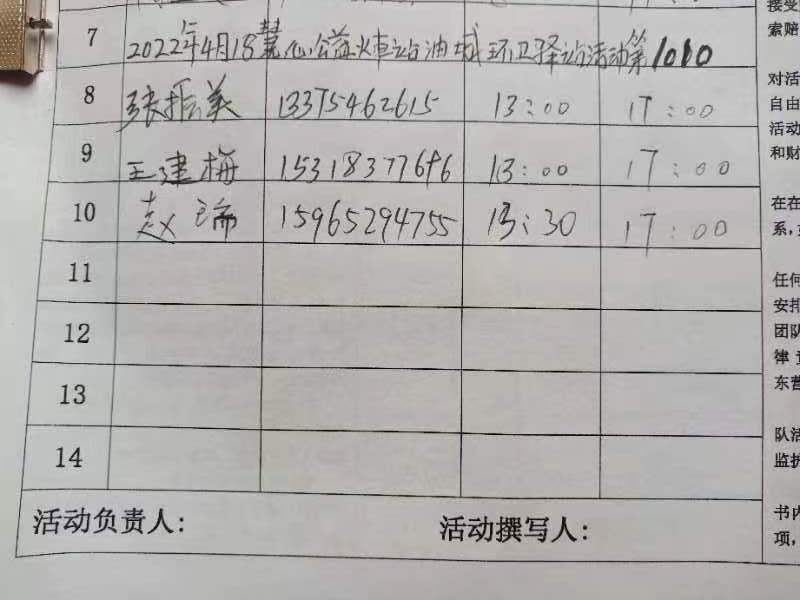 7 2022年4月18慧心公益火车站油城环卫驿站活动第1010
8 张振美 13375462615 13:00 17:00
9 王建梅 15318377696 13:00 17:00
10 赵瑞 15965294755 13:30 17:00
11
12
13
14
活动负责人: 活动撰写人:
接受
索赔
对活
自由
活动
和财
在在
系,
任何
安排
团队
律
东营
队活
监护
书内
项,